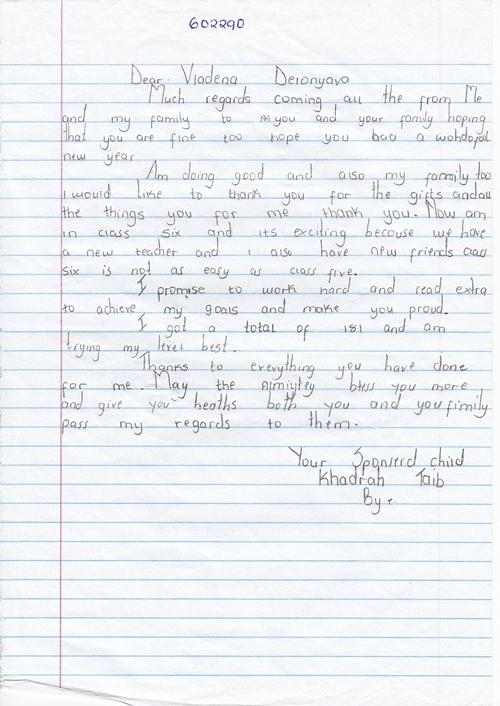 602290
Dear. Vladena Deronyava
Much regards coming all the from Me
and my family to you and your family hoping
that you are fine too hope you had a wohdojal
new year
Am doing good and also my family too
I would like to thank you for the gifts and all
the things you for me thank you. Now am
in class six and its exciting becouse we have
a new teacher and I also have new friends class
six is not as easy as class five.
I promise to work hard and read extra
to achieve my goals and make you proud.
I got a total of 181 and am
trying my level best.
Thanks to everything you have done
for me. May the Almiytey bless you more
and give you heaths both you and you fimily
pass my regards to them.
Your Sponserd child
Khadrah Taib
By.